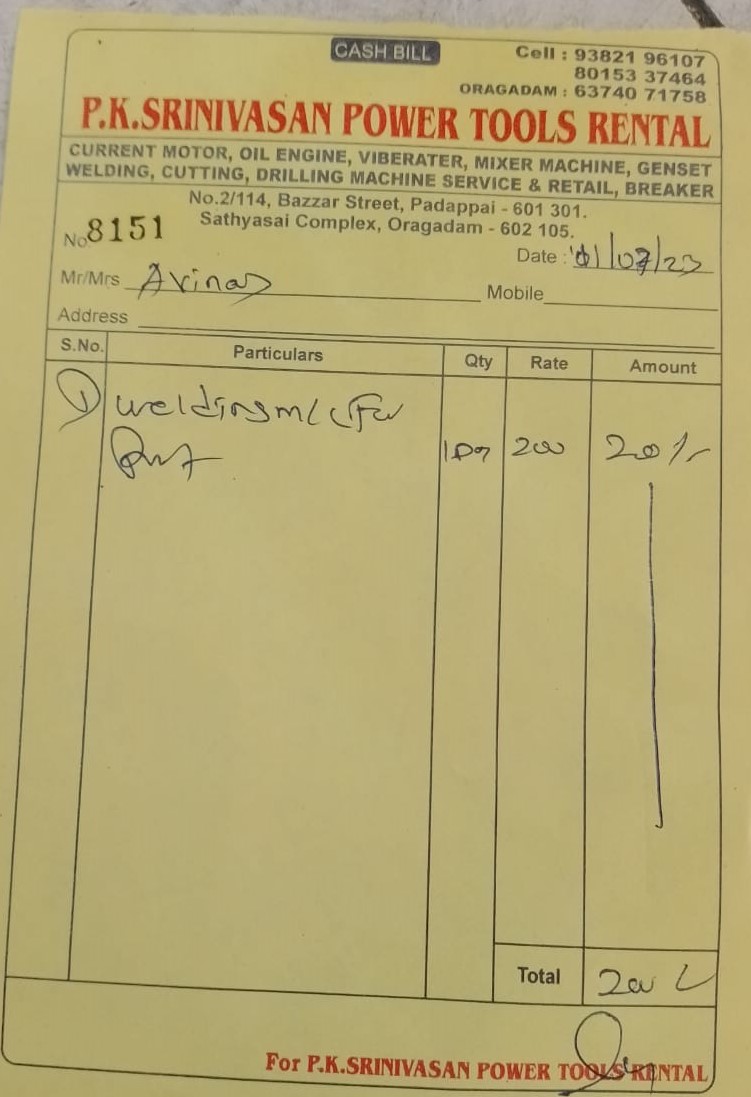 CASH BILL
Cell : 93821 96107
80153 37464
ORAGADAM : 63740 71758
P.K.SRINIVASAN POWER TOOLS RENTAL
CURRENT MOTOR, OIL ENGINE, VIBERATER, MIXER MACHINE, GENSET
WELDING, CUTTING, DRILLING MACHINE SERVICE & RETAIL, BREAKER
No.2/114, Bazzar Street, Padappai - 601 301.
Sathyasai Complex, Oragadam - 602 105.
No 8151
Date : 01/07/23
Mr/Mrs Avinas Mobile
Address
S.No. Particulars Qty Rate Amount
1) welding m/c for
200
Total 200
For P.K.SRINIVASAN POWER TOOLS RENTAL